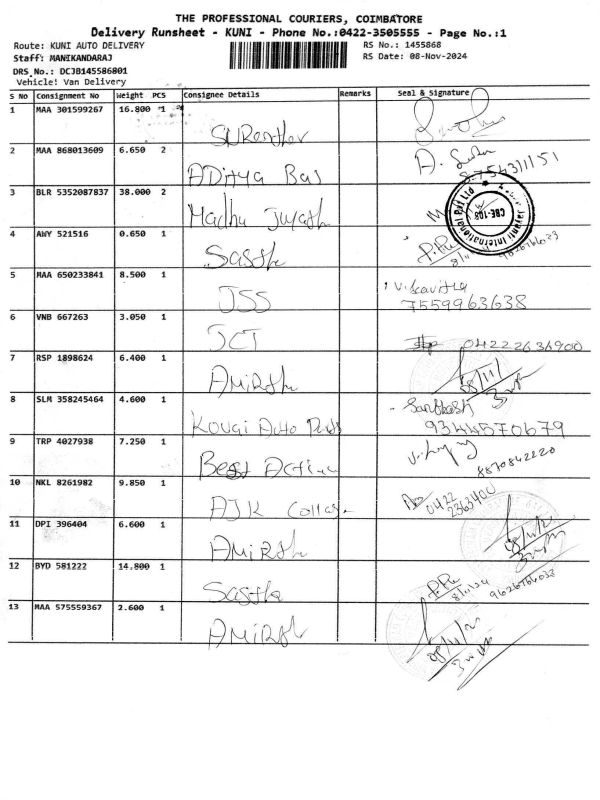 THE PROFESSIONAL COURIERS, COIMBATORE
Delivery Runsheet - KUNI - Phone No.:0422-3505555 - Page No.:1
Route: KUNI AUTO DELIVERY RS No.: 1455868
Staff: MANIKANDARAJ RS Date: 08-Nov-2024
DRS_No.: DCJB145586801
Vehicle: Van Delivery
S No Consignment No Weight PCS Consignee Details Remarks Seal & Signature
1 MAA 301599267 16.800 1
2 MAA 868013609 6.650 2 ADitya Bas
3 BLR 5352087837 38.000 2 Madhu
Jayanti International Pvt Ltd CBE-108
4 AWY 521516 0.650 1 Sasthe
5 MAA 650233841 8.500 1 JSS V. Kavitha
7559963638
6 VNB 667263 3.050 1 SCT 04222636900
7 RSP 1898624 6.400 1 AMiRthe
8 SLM 358245464 4.600 1 KOVAi Auto Parts Santhosh
9344570679
9 TRP 4027938 7.250 1 Best Active 8870842220
10 NKL 8261982 9.850 1 AJK College 0422
2363400
11 DPI 396404 6.600 1 AMiRthe
12 BYD 581222 14.800 1 Sasthe 8/11/24 9626766033
13 MAA 575559367 2.600 1 AMiRthe